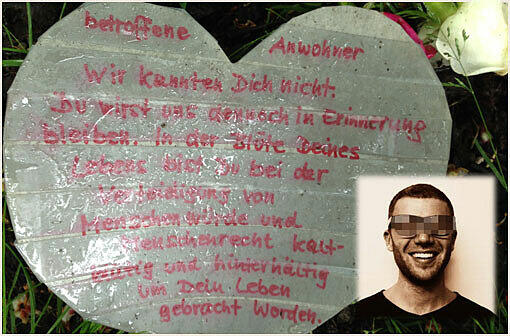 betroffene Anwohner
Wir kannten Dich nicht.
Du wirst uns dennoch in Erinnerung
bleiben. In der Blüte Deines
Lebens bist Du bei der
Verteidigung von
Menschenwürde und
Menschenrecht kalt-
blütig und hinterhältig
um Dein Leben
gebracht worden.